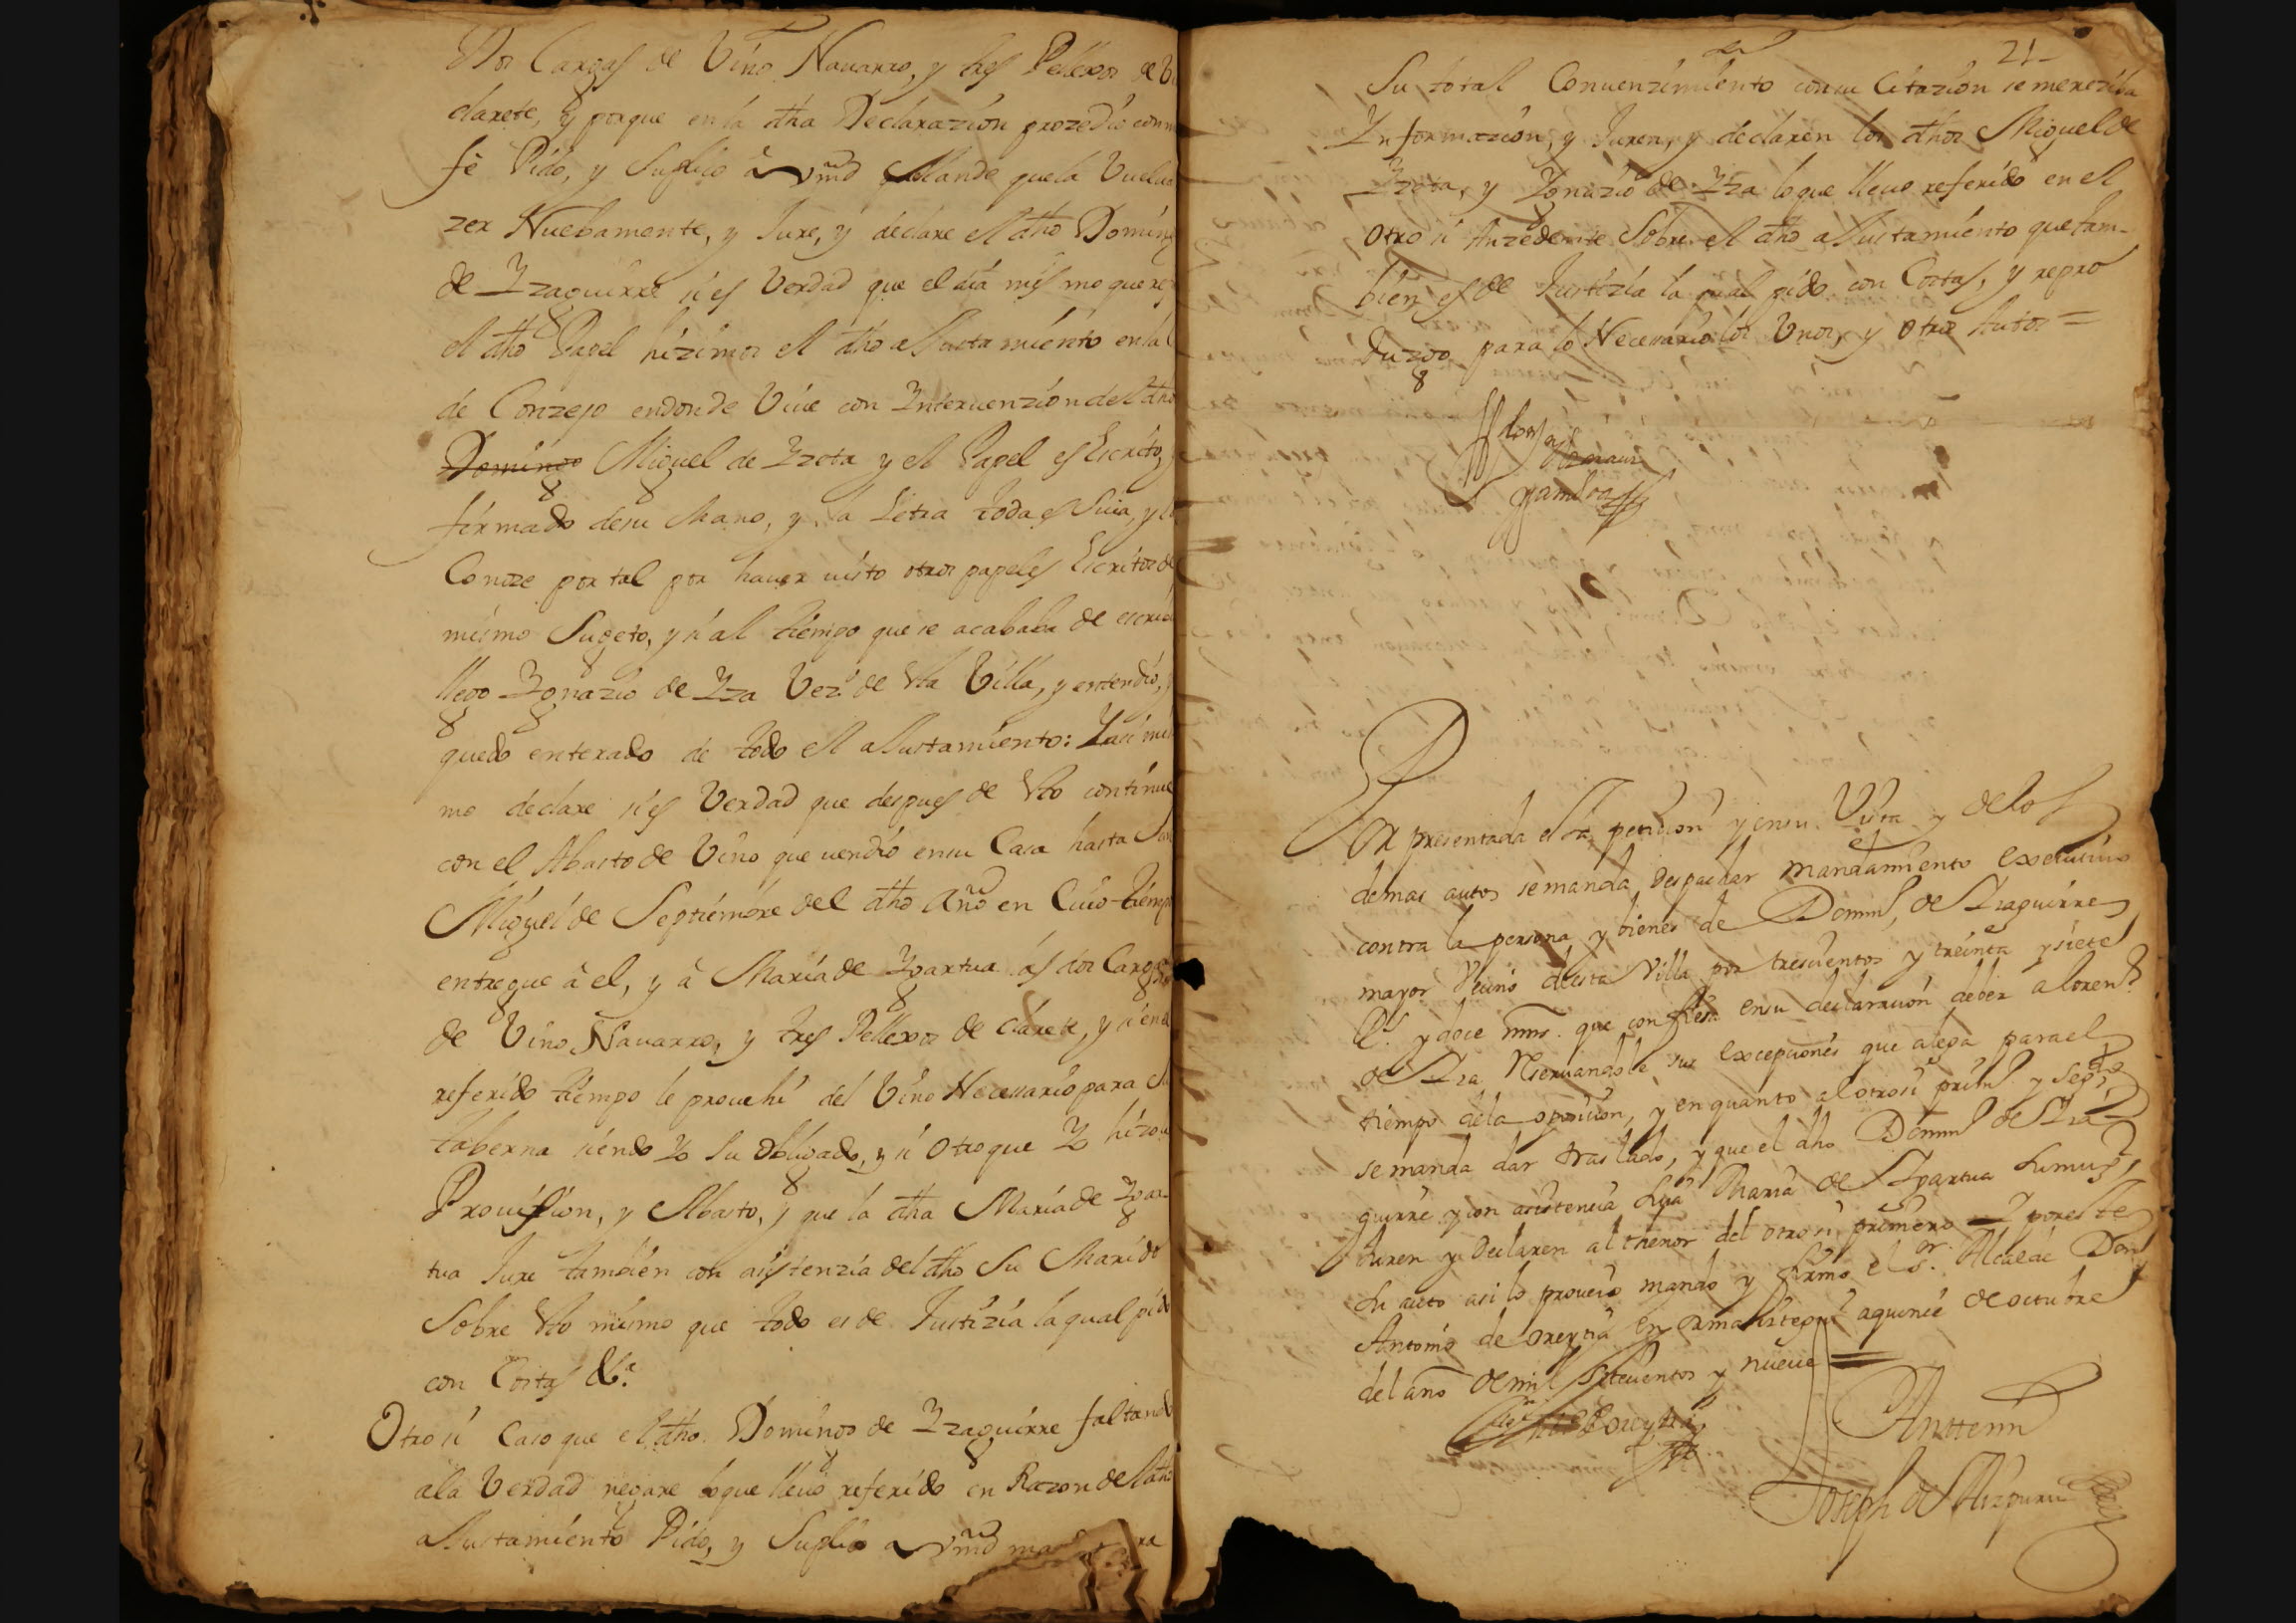 Dos Cargas de Vino Nauarro, y tres Pellexos de
clarete, y porque en la dha Declarazion prozedio con
fe Pido, y Suplico à Vmd Mande que la Vuelua
zer Nuebamente, y Jure, y declare el dho Doming
de Yzaguirre si es Verdad que el dia mismo que
el dho Papel hizimos el dho aJustamiento en la
de Conzejo endonde Viue con Interuenzion del dho
Domingo Miguel de Yzeta y el Papel es Escrito,
firmado de su Mano, y la Letra toda es Suia, y
Conoze por tal por hauer uisto otros papeles Escritos de
mismo Sugeto, y si al tiempo que se acababa de escriu
llego Ygnazio de Yza Vez.º de esta Villa, y entendio,
quedo enterado de todo el aJustamiento: Y asi mis
mo declare si es Verdad que despues de esto continue
con el Abasto de Vino que uendio en su Casa hasta San
Miguel de Septiembre del dho Año en Cuio tiempo
entregue à el, y à Maria de Ygartua las dos Cargas
de Vino Nauarro, y tres Pellexos de clarete, y si en el
referido tiempo le prouehi del Vino Necessario para su
taberna siendo Yo Su Obligado, y si Otro que Yo hizo
Prouission, y Abasto, y que la dha Maria de Ygar-
tua Jure tambien con asistenzia del dho Su Marido
Sobre esto mismo que todo es de Justizia la qual pido
con Costas &ª.
Otro si Caso que el dho Domingo de Yzaguirre faltando
a la Verdad negare lo que lleuo referido en Razon del dho
aJustamiento Pido, y Suplico a Vmd
21
Su total Conuenzimiento con su Citazion se me reziba
Ynformazion, y Juren, y declaren los dhos Miguel de
Yzeta, y Ygnazio de Yza lo que lleuo referido en el
Otro si Anzedente Sobre el dho aJustamiento que tam-
bien es de Justizia la qual pido con Costas, y repro
Duzgo para lo Necessario los Unos, y Otros Autos =
Por presentada esta peticion y en su Vista y de los
demas autos se manda despachar mandamiento executiuo
contra la persona y bienes de Domin.º de Yzaguirre
mayor Vecino desta Villa por trescientos y treinta y siete
R.s y doce mrs. que confiesa en su declaracion deber a Loren.º
de Yza Reseruandole sus excepciones que alega para el
tiempo de la oposicion, y en quanto al otrosi prim.º y seg.do
se manda dar traslado, y que el dho Domin.º de Yza-
guirre y con asistencia suya Maria de Ygartua su mug.r
Juren y Declaren al thenor del otro si primero y por este
su auto asi lo proueio mando y firmo el S.or Alcalde Don
Antonio de Oreytia en Ormaiztegui a quince de octubre
del año de mil setecientos y nueue =
Antte mi
Joseph de Aizpuru